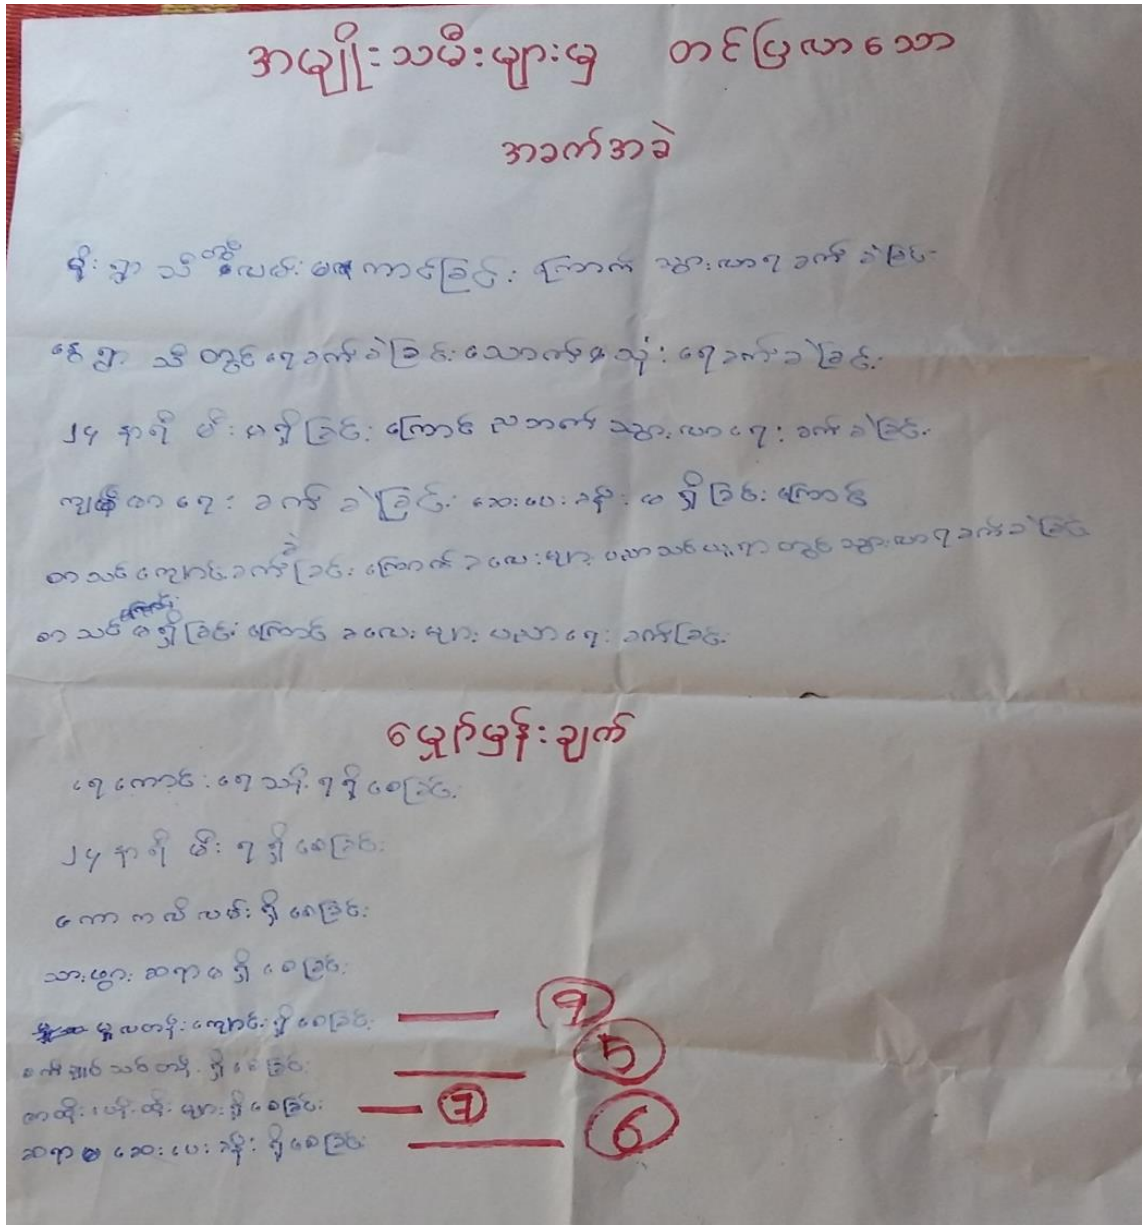 အမျိုးသမီးများမှ တင်ပြလာသော
အခက်အခဲ
မိုးရွာသီတွင်လမ်းမကောင်ခြင်း ကြောက် သွားလာရခက်ခဲခြင်း
နွေရွာသီတွင်ရေခက်ခဲခြင်း သောက်သုံးရေခက်ခဲခြင်း
၂၄ နာရီ မီးမရှိခြင်း ကြောင် ညဘက် သွားလာရေး ခက်ခဲခြင်း
ကျန်မာရေး ခက်ခဲခြင်း ဆေးပေးခန်းမရှိခြင်းကြောင်
စာသင်ကျောင်းခက်ခဲခြင်း ကြောက် ခလေးများ ပညာသင်ယူရာတွင်သွားလာရခက်ခဲခြင်း
စာသင်ကျောင်းမရှိခြင်း ကြောင် ခလေးများ ပညာရေး ခက်ခြင်း
မျှော်မှန်းချက်
ရေကောင်းရေသန့်ရရှိစေခြင်း
၂၄ နာရီ မီးရရှိစေခြင်း
ကောကလိလမ်းရှိစေခြင်း
သားဖွားဆရာမရှိစေခြင်း
မူလတန်းကျောင်းရှိစေခြင်း 9
စက်ချုပ်သင်တန်းရှိစေခြင်း 5
ဇာထိုးပန်းထိုးများရှိစေခြင်း 7
ဆရာမဆေးပေးခန်းရှိစေခြင်း 6